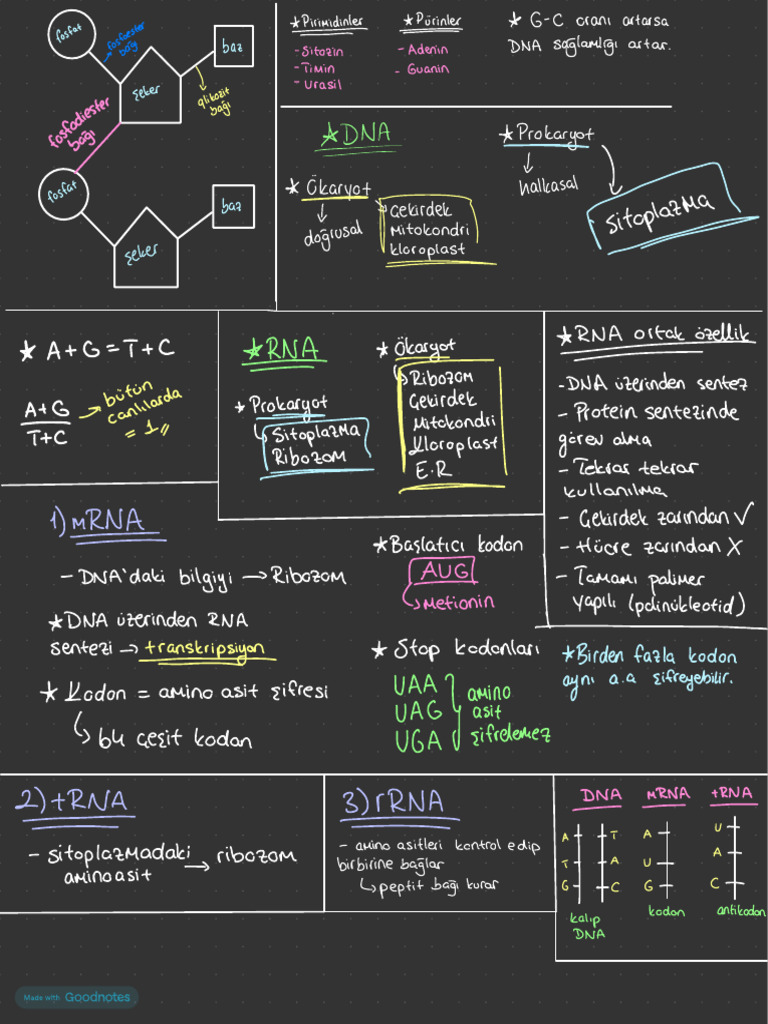 fosfat
fosfoester
bağı
baz
şeker
glikozit
bağı
fosfodiester
bağı
fosfat
baz
şeker
★ Pirimidinler
- Sitozin
- Timin
- Urasil
★ Pürinler
- Adenin
- Guanin
★ G-C oranı artarsa
DNA sağlamlığı artar.
★ DNA
★ Ökaryot
doğrusal
Çekirdek
Mitokondri
Kloroplast
★ Prokaryot
halkasal
Sitoplazma
★ A+G=T+C
A+G
T+C
→ bütün
canlılarda
= 1 //
★ RNA
★ Prokaryot
Sitoplazma
Ribozom
★ Ökaryot
Ribozom
Çekirdek
Mitokondri
Kloroplast
E.R
★ RNA ortak özellik
-DNA üzerinden sentez
- Protein sentezinde
görev alma
- Tekrar tekrar
kullanılma
- Çekirdek zarından √
- Hücre zarından X
- Tamamı polimer
yapılı (polinükleotid)
1) mRNA
- DNA'daki bilgiyi → Ribozom
★ DNA üzerinden RNA
sentezi → transkripsiyon
★ Kodon = amino asit şifresi
↳ 64 çeşit kodon
★ Başlatıcı kodon
AUG
↳ Metionin
★ Stop kodonları
UAA
UAG
UGA
amino
asit
şifrelemez
★ Birden fazla kodon
aynı a.a şifreyebilir.
2) tRNA
- sitoplazmadaki → ribozom
aminoasit
3) rRNA
- amino asitleri kontrol edip
birbirine bağlar
↳ peptit bağı kurar
DNA mRNA tRNA
A T A U
T A U A
G C G C
kalıp
DNA
kodon
antikodon
Made with Goodnotes